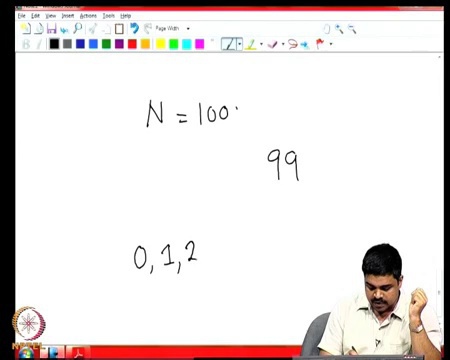 File Edit View Insert Actions Tools Help
Page Width
B
N = 100
99
0, 1, 2